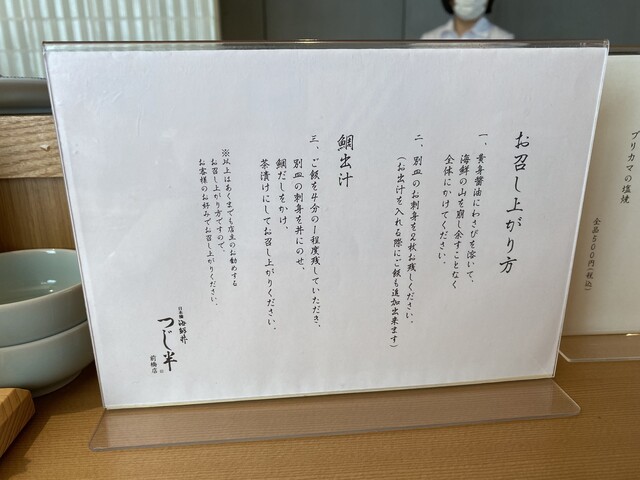 お召し上がり方
一、黄身醤油にわさびを溶いて、
海鮮の山を崩し余すことなく
全体にかけてください。
二、別皿のお刺身を2枚お残しください。
(お出汁を入れる際にご飯も追加出来ます)
鯛出汁
三、ご飯を4分の1程度残していただき、
別皿の刺身を丼にのせ、
鯛だしをかけ、
茶漬けにしてお召し上がりください。
※以上はあくまでも店主のお勧めする
お召し上がり方ですので、
お客様のお好みでお召し上がりください。
日本橋 海鮮丼
つじ半
前橋店
ブリカマの塩焼
全品500円(税込)